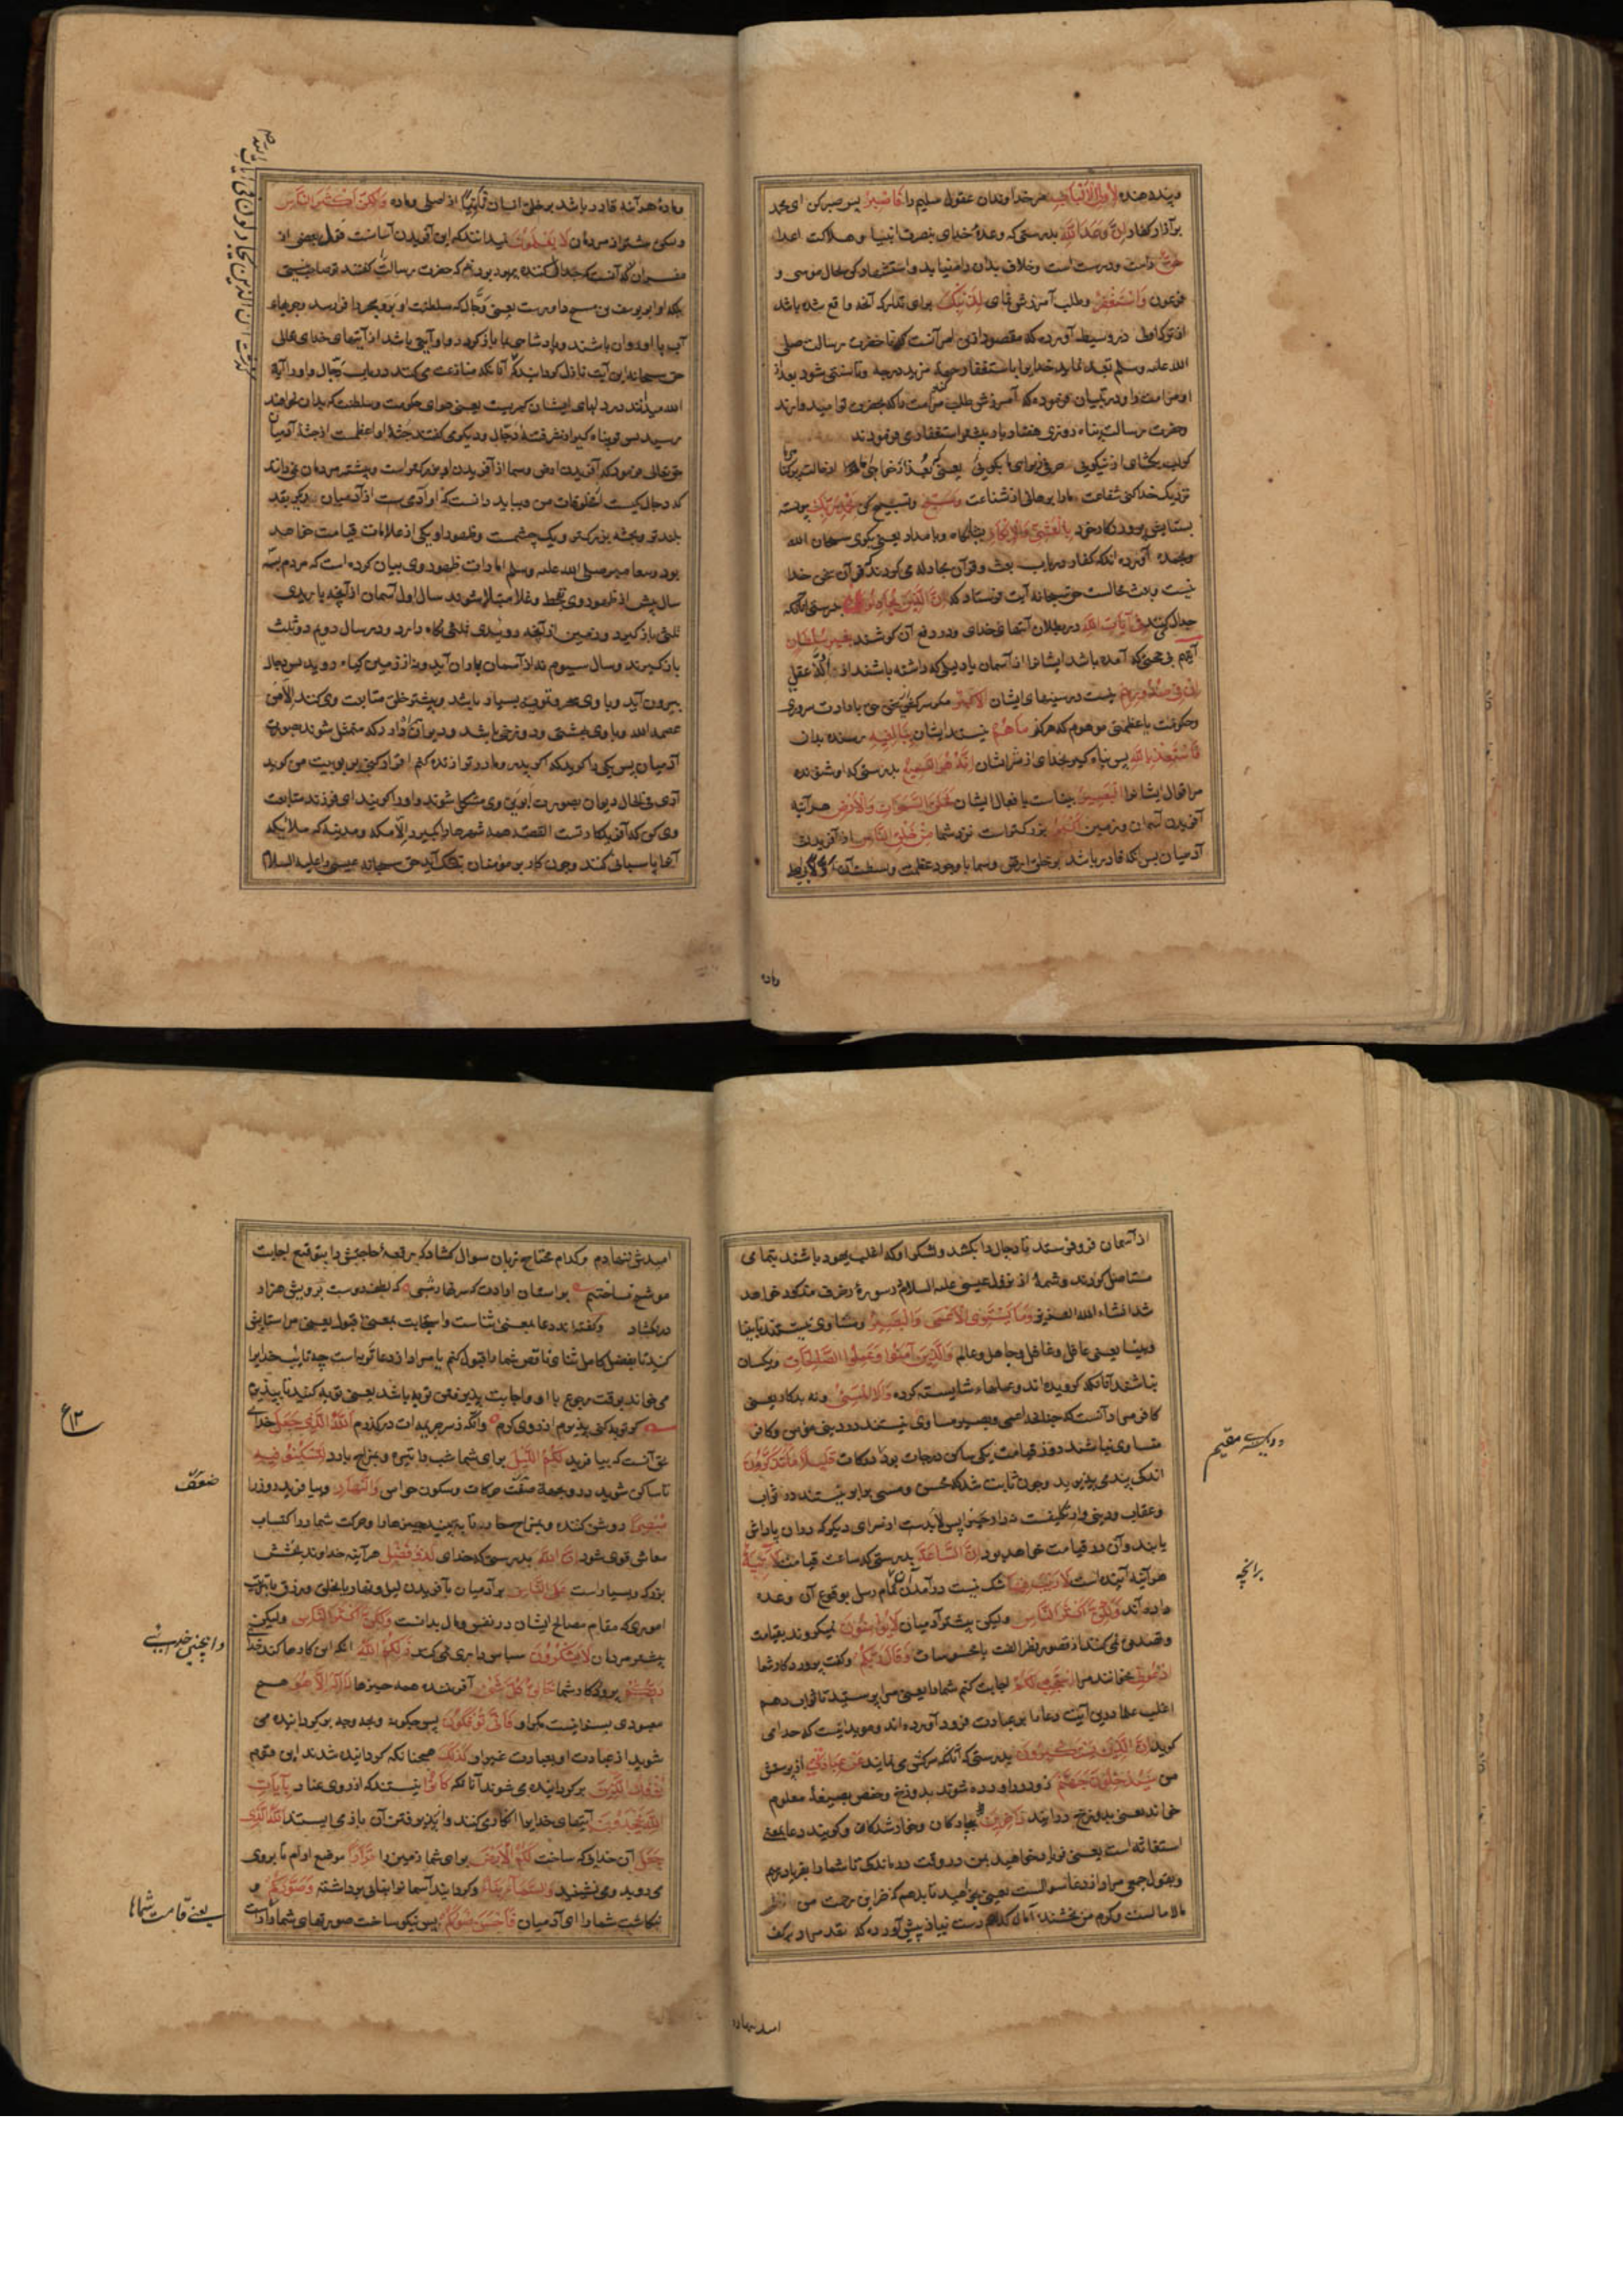 وپند دهنده لِأُولِي الْأَلْبَابِ مر خداوندان عقول سلیم را فَاصْبِرْ پس صبر کن ای محمد
بر آزار کفار إِنَّ وَعْدَ اللَّهِ بدرستی که وعدهٔ خدای بنصرت انبیا و هلاکت اعدا
حَقٌّ راست و درست است و خلاف بدان راه نیابد و استشهاد کن بحال موسی و
فرعون وَاسْتَغْفِرْ و طلب آمرزش نمای لِذَنْبِكَ برای تدارک آنچه واقع شده باشد
از ترک اولی در وسیط آورده که مقصود ازین امر آنست که تا حضرت رسالت صلی
الله علیه وسلم تعبد نماید خدایرا باستغفار جهة مزید درجه و تا سنتی شود بعد از
او مر امت را و در تبیان فرموده که آمرزش طلب مر امت را که بحضرت تو امیدوارند
وحضرت رسالت پناه روزی هفتاد بار استغفار می فرمودند
نزدیک خدا کنی شفاعت ما را برهانی از شناعت وَسَبِّحْ و تسبیح کن بِحَمْدِ رَبِّكَ پیوسته
بستایش پروردگار خود بِالْعَشِيِّ وَالْإِبْكَارِ شبانگاه و بامداد یعنی بگوی سبحان الله
وبحمده آورده اند که کفار در باب بعث و قرآن مجادله می کردند که قرآن سخن خدا
نیست و بعث محالست حق سبحانه آیت فرستاد که إِنَّ الَّذِينَ يُجَادِلُونَ بدرستی آنانکه
جدال کنند فِي آيَاتِ اللَّهِ در بطلان آیتهای خدای و در دفع آن کوشند بِغَيْرِ سُلْطَانٍ
أَتَاهُمْ بی حجتی که آمده باشد ایشانرا از آسمان یا دلیلی که داشته باشند از عقلی
إِنْ فِي صُدُورِهِمْ نیست در سینهای ایشان إِلَّا كِبْرٌ مگر سرکشی یا ارادت سروری
وحکومت یا عظمتی موهوم که هرگز مَا هُمْ نیستند ایشان بِبَالِغِيهِ رسنده بدان
فَاسْتَعِذْ بِاللَّهِ پس پناه گیر بخدای از شر ایشان إِنَّهُ هُوَ السَّمِيعُ بدرستی که او شنونده
مر اقوال ایشانرا الْبَصِيرُ بیناست بافعال ایشان لَخَلْقُ السَّمَاوَاتِ وَالْأَرْضِ هر آینه
آفریدن آسمان و زمین أَكْبَرُ بزرگتر است نزد شما مِنْ خَلْقِ النَّاسِ از آفریدن
آدمیان پس آنکه قادر باشد بر خلق ارض و سما با وجود عظمت و بسطت آن
وماده هر آینه قادر باشد بر خلق انسان ثانیا از اصلی و ماده وَلَٰكِنَّ أَكْثَرَ النَّاسِ
ولیکن بیشتر از مردمان لَا يَعْلَمُونَ نمیدانند که این آفریدن آسانست قول بعضی از
مفسران آنست که جدال کننده یهود بودند که حضرت رسالت را گفتند تو صاحب نیستی
بلکه او ابو یوسف بن مسیح داودست یعنی دجال که سلطنت او بر و بحر را فرا رسد وجویهای
آب با او روان باشند و پادشاهی بما باز گردد و او آیتی باشد از آیتهای خدای تعالی
حق سبحانه این آیت نازل گردانید که آنانکه منازعت می کنند در باب دجال و او را آیة
الله میدانند در دلهای ایشان کبریست یعنی هوای حکومت و سلطنت که بدان نخواهند
رسید پس تو پناه گیر از شر فتنهٔ دجال و دیگر می گفتند جثهٔ او اعظمست از جثهٔ آدمیان
حق تعالی فرمود که آفریدن ارض و سما از آفریدن او بزرگتر است و بیشتر مردمان نمی دانند
که دجال کیست از مخلوقات من و بباید دانست که او آدمی ست از آدمیان دیگر بقد
بلند تر و بجثه بزرگتر و یک چشمست و ظهور او یکی از علامات قیامت خواهد
بود و پیغامبر صلی الله علیه وسلم امارات ظهور وی بیان کرده است که مردم بسه
سال پیش از ظهور وی بقحط و غلا مبتلا شوند سال اول آسمان از آنچه باریدی
ثلثی باز گیرد و زمین از آنچه رویندی ثلثی نگاه دارد و در سال دوم دو ثلث
باز گیرند و سال سیوم نه از آسمان باران آید و نه از زمین گیاه روید پس دجال
بیرون آید و با وی سحر و تمویه بسیار باشد و بیشتر خلق متابعت وی کنند إلا من
عصمه الله و با وی بهشتی و دوزخی باشد و دیوان دارد که متمثل شوند بصورت
آدمیان پس یکی را گوید که اگر پدر و مادر تو زنده کنم اقرار کنی بربوبیت من گوید
آری فی الحال دیوان بصورت ابوین وی متشکل شوند و او را گویند ای فرزند متابعت
وی کن که آفریدگار تست القصه همه شهرها را بگیرد الا مکه و مدینه که ملائکه
آنها پاسبانی کنند و چون کار بر مؤمنان بتنگ آید حق سبحانه عیسی علیه السلام
واده
از آسمان فرو فرستد تا دجال را بکشد و لشکر او که اغلب یهود باشند بتمامی
مستاصل گردند و شمهٔ از نزول عیسی علیه السلام در سورهٔ زخرف مذکور خواهد
شد انشاء الله العزیز وَمَا يَسْتَوِي الْأَعْمَىٰ وَالْبَصِيرُ و مساوی نیستند نابینا
وبینا یعنی عاقل و غافل و جاهل و عالم وَالَّذِينَ آمَنُوا وَعَمِلُوا الصَّالِحَاتِ و یکسان
نباشند آنانکه گرویده اند و عملهاء شایسته کرده وَلَا الْمُسِيءُ و نه بدکار یعنی
کافر مراد آنست که چنانچه اعمی و بصیر مساوی نیستند در دین مؤمن و کافر
متساوی نباشند در روز قیامت یکی ساکن درجات بود در درکات قَلِيلًا مَا تَتَذَكَّرُونَ
اندکی پند می پذیرید و چون ثابت شد که محسن و مسیء برابر نیستند در ثواب
یابند و آن در قیامت خواهد بود إِنَّ السَّاعَةَ بدرستی که ساعت قیامت لَآتِيَةٌ
هر آینه آینده است لَا رَيْبَ فِيهَا شک نیست در آمدن تمام رسل بوقوع آن وعده
داده اند وَلَٰكِنَّ أَكْثَرَ النَّاسِ ولیکن بیشتر آدمیان لَا يُؤْمِنُونَ نمیگروند بقیامت
وتصدیق نمی کنند از قصور نظر الفت بمحسوسات وَقَالَ رَبُّكُمُ و گفت پروردگار شما
ادْعُونِي بخوانید مرا أَسْتَجِبْ لَكُمْ اجابت کنم شما را یعنی مرا پرستید تا ثواب دهم
اغلب علما درین آیت دعا را بر عبادت فرود آورده اند و موید اینست که خدا می
گوید إِنَّ الَّذِينَ يَسْتَكْبِرُونَ بدرستی که آنانکه سرکشی می نمایند عَنْ عِبَادَتِي از پرستش
من سَيَدْخُلُونَ جَهَنَّمَ زود در آورده شوند بدوزخ و حفص بصیغهٔ معلوم
خواند یعنی بدوزخ در آیند دَاخِرِينَ بیچارگان و خوار شدگان و گویند دعا بمعنی
استغاثه است یعنی فریاد خواهید بمن در وقت درماندگی تا شما را بفریاد رسم
وبقول جمعی مراد از دعا سوالست یعنی بخواهید تا بدهم که خزاین رحمت من
مالا مالست و کرم من بخشنده آمال کدام گدا دست نیاز پیش آورد که نقد مراد بر کف
امید ننهادم
امیدش ننهادم و کدام محتاج زبان سوال گشاد که رقعهٔ حاجتش را بتوقیع اجابت
موشح نساختیم بر استان ارادت که سر نهاد شبی که لطف دوست برویش هزار
در نگشاد و گفته اند دعا بمعنی ثناست و استجابت بمعنی قبول یعنی مرا ستایش
کنید تا بفضل کامل ثنای ناقص شما را قبول کنم یا مراد از دعا توبه است چه تایب خدایرا
می خواند بوقت رجوع با او و اجابت پذیرفتن توبه باشد یعنی توبه کنید تا بپذیرم
گر توبه کنی پذیرم از روی کرم وانگه ز سر جریمه ات در گذرم اللَّهُ الَّذِي جَعَلَ خدای
بحق آنست که بیافرید لَكُمُ اللَّيْلَ برای شما شب را تیره و بمزاج بارد لِتَسْكُنُوا فِيهِ
تا ساکن شوید در و بجهة ضعف حرکات و سکون حواس وَالنَّهَارَ و بیافرید روز را
مُبْصِرًا روشن کننده و بمزاج حار تا به بینید چیزها را و حرکت شما در اکتساب
معاش قوی شود إِنَّ اللَّهَ بدرستی که خدای لَذُو فَضْلٍ هر آینه خداوند بخشش
بزرگ و بسیار است عَلَى النَّاسِ بر آدمیان بآفریدن لیل و نهار
اموری که مقام مصالح ایشان در نفس و مال بدانست وَلَٰكِنَّ أَكْثَرَ النَّاسِ ولیکن
بیشتر مردمان لَا يَشْكُرُونَ سپاس داری نمی کنند ذَٰلِكُمُ اللَّهُ آنکه این کارها کند خدا
رَبُّكُمْ پروردگار شما خَالِقُ كُلِّ شَيْءٍ آفریننده همه چیزها لَا إِلَٰهَ إِلَّا هُوَ هیچ
معبودی بسزا نیست مگر او فَأَنَّىٰ تُؤْفَكُونَ پس چگونه و بچه وجه برگردانیده می
شوید از عبادت او بعبادت غیر او كَذَٰلِكَ همچنانکه گردانیده شدند این قوم
يُؤْفَكُ الَّذِينَ برگردانیده می شوند آنانکه كَانُوا نیستند که از روی عناد بِآيَاتِ
اللَّهِ يَجْحَدُونَ آیتهای خدایرا انکار می کنند و از پذیرفتن آن باز می ایستند اللَّهُ الَّذِي
جَعَلَ آن خدایست که ساخت لَكُمُ الْأَرْضَ برای شما زمین را قَرَارًا موضع آرام تا بروی
می روید و می نشینید وَالسَّمَاءَ بِنَاءً و گردانید آسمانرا بنائی برداشته وَصَوَّرَكُمْ و
نگاشت شما را ای آدمیان فَأَحْسَنَ صُوَرَكُمْ پس نیکو ساخت صورتهای شما را
ضعف
یعنی قامت شما را